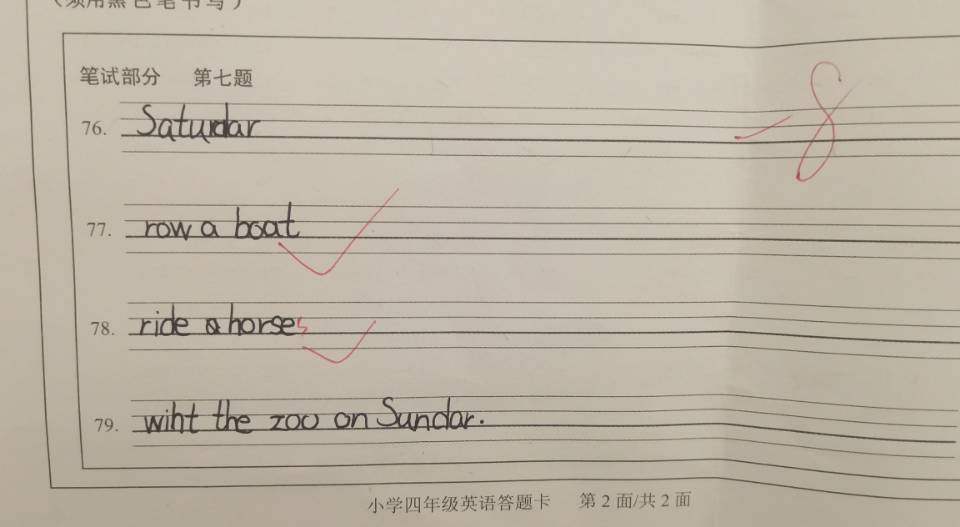 (须用黑色笔书写)
笔试部分 第七题
76. Saturdar
-8
77. row a boat
78. ride a horses
79. wiht the zoo on Sundar.
小学四年级英语答题卡 第2面/共2面